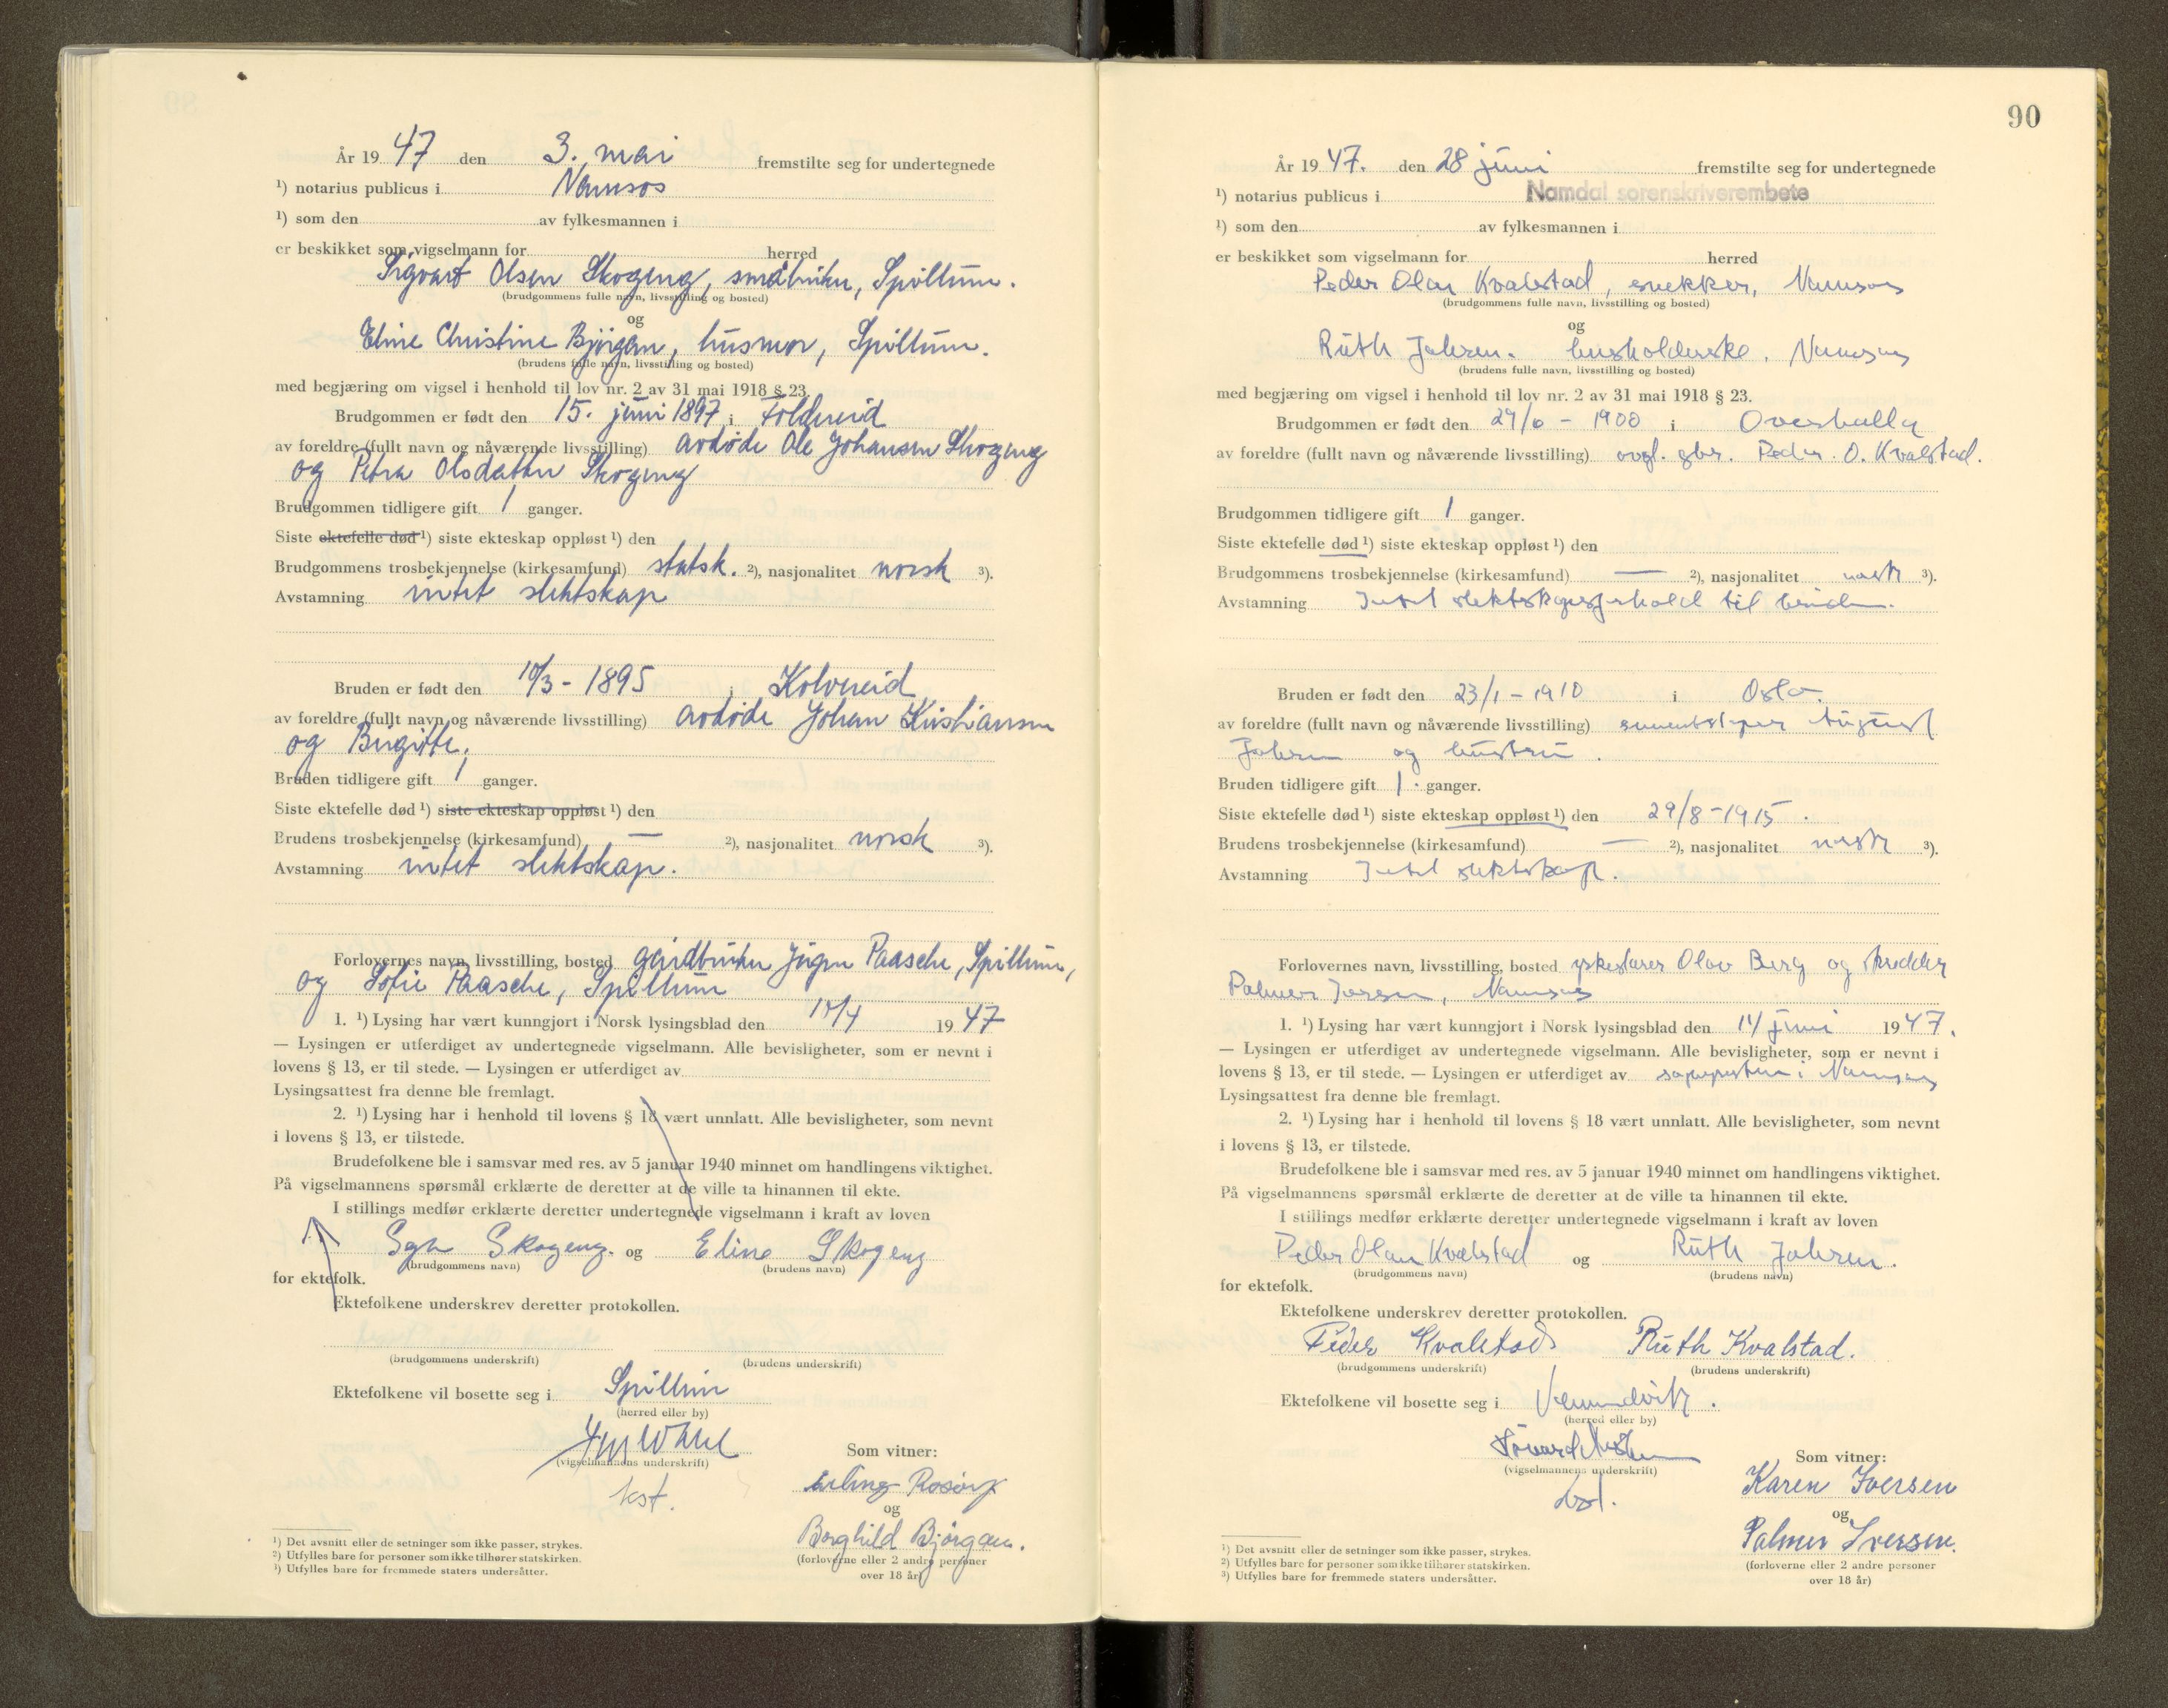 År 19 47 den 3. mai fremstilte seg for undertegnede
¹) notarius publicus i Namsos
¹) som den av fylkesmannen i
er beskikket som vigselmann for herred
Sigvart Olsen Skogeng, småbruker, Spillum.
(brudgommens fulle navn, livsstilling og bosted)
og
Eline Christine Bjørgan, husmor, Spillum.
(brudens fulle navn, livsstilling og bosted)
med begjæring om vigsel i henhold til lov nr. 2 av 31 mai 1918 § 23.
Brudgommen er født den 15. juni 1897 i Foldereid
av foreldre (fullt navn og nåværende livsstilling) avdøde Ole Johansen Skogeng
og Petra Olsdatter Skogeng
Brudgommen tidligere gift 1 ganger.
Siste ektefelle død ¹) siste ekteskap oppløst ¹) den
Brudgommens trosbekjennelse (kirkesamfund) statsk. ²), nasjonalitet norsk ³).
Avstamning intet slektskap
Bruden er født den 10/3 - 1895 i Kolvereid
av foreldre (fullt navn og nåværende livsstilling) avdøde Johan Kristiansen
og Birgitte.
Bruden tidligere gift 1 ganger.
Siste ektefelle død ¹) siste ekteskap oppløst ¹) den
Brudens trosbekjennelse (kirkesamfund) — ²), nasjonalitet norsk ³).
Avstamning intet slektskap.
Forlovernes navn, livsstilling, bosted gårdbruker Jørgen Paasche, Spillum,
og Sofie Paasche, Spillum
1. ¹) Lysing har vært kunngjort i Norsk lysingsblad den 10/4 19 47
— Lysingen er utferdiget av undertegnede vigselmann. Alle bevisligheter, som er nevnt i
lovens § 13, er til stede. — Lysingen er utferdiget av
Lysingsattest fra denne ble fremlagt.
2. ¹) Lysing har i henhold til lovens § 18 vært unnlatt. Alle bevisligheter, som nevnt
i lovens § 13, er tilstede.
Brudefolkene ble i samsvar med res. av 5 januar 1940 minnet om handlingens viktighet.
På vigselmannens spørsmål erklærte de deretter at de ville ta hinannen til ekte.
I stillings medfør erklærte deretter undertegnede vigselmann i kraft av loven
Skogeng. og Eline Skogeng
(brudgommens navn) (brudens navn)
for ektefolk.
Ektefolkene underskrev deretter protokollen.
(brudgommens underskrift) (brudens underskrift)
Ektefolkene vil bosette seg i Spillum
(herred eller by)
(vigselmannens underskrift)
kst.
Som vitner:
Erling Rosvig
og
Borghild Bjørgan.
(forloverne eller 2 andre personer
over 18 år)
¹) Det avsnitt eller de setninger som ikke passer, strykes.
²) Utfylles bare for personer som ikke tilhører statskirken.
³) Utfylles bare for fremmede staters undersåtter.
90
År 19 47. den 28 juni fremstilte seg for undertegnede
¹) notarius publicus i Namdal sorenskriverembete
¹) som den av fylkesmannen i
er beskikket som vigselmann for herred
Peder Olan Kvalstad, snekker, Namsos
(brudgommens fulle navn, livsstilling og bosted)
og
Ruth Jahren. husholderske. Namsos
(brudens fulle navn, livsstilling og bosted)
med begjæring om vigsel i henhold til lov nr. 2 av 31 mai 1918 § 23.
Brudgommen er født den 29/6 - 1900 i Overhalla
av foreldre (fullt navn og nåværende livsstilling) avd. gbr. Peder O. Kvalstad.
Brudgommen tidligere gift 1 ganger.
Siste ektefelle død ¹) siste ekteskap oppløst ¹) den
Brudgommens trosbekjennelse (kirkesamfund) — ²), nasjonalitet norsk ³).
Avstamning Intet slektskapsforhold til bruden.
Bruden er født den 23/1 - 1910 i Oslo.
av foreldre (fullt navn og nåværende livsstilling) sementstøper August
Jahren og hustru.
Bruden tidligere gift 1. ganger.
Siste ektefelle død ¹) siste ekteskap oppløst ¹) den 29/8 - 1915.
Brudens trosbekjennelse (kirkesamfund) — ²), nasjonalitet norsk ³).
Avstamning Intet slektskap.
Forlovernes navn, livsstilling, bosted yrkeslærer Olav Berg og skredder
Palmer Iversen, Namsos
1. ¹) Lysing har vært kunngjort i Norsk lysingsblad den 14 juni 19 47.
— Lysingen er utferdiget av undertegnede vigselmann. Alle bevisligheter, som er nevnt i
lovens § 13, er til stede. — Lysingen er utferdiget av sogneprsten i Namsos
Lysingsattest fra denne ble fremlagt.
2. ¹) Lysing har i henhold til lovens § 18 vært unnlatt. Alle bevisligheter, som nevnt
i lovens § 13, er tilstede.
Brudefolkene ble i samsvar med res. av 5 januar 1940 minnet om handlingens viktighet.
På vigselmannens spørsmål erklærte de deretter at de ville ta hinannen til ekte.
I stillings medfør erklærte deretter undertegnede vigselmann i kraft av loven
Peder Olan Kvalstad og Ruth Jahren.
(brudgommens navn) (brudens navn)
for ektefolk.
Ektefolkene underskrev deretter protokollen.
Peder Kvalstad Ruth Kvalstad.
(brudgommens underskrift) (brudens underskrift)
Ektefolkene vil bosette seg i Vemundvik.
(herred eller by)
(vigselmannens underskrift)
Som vitner:
Karen Iversen
og
Palmer Iversen.
(forloverne eller 2 andre personer
over 18 år)
¹) Det avsnitt eller de setninger som ikke passer, strykes.
²) Utfylles bare for personer som ikke tilhører statskirken.
³) Utfylles bare for fremmede staters undersåtter.